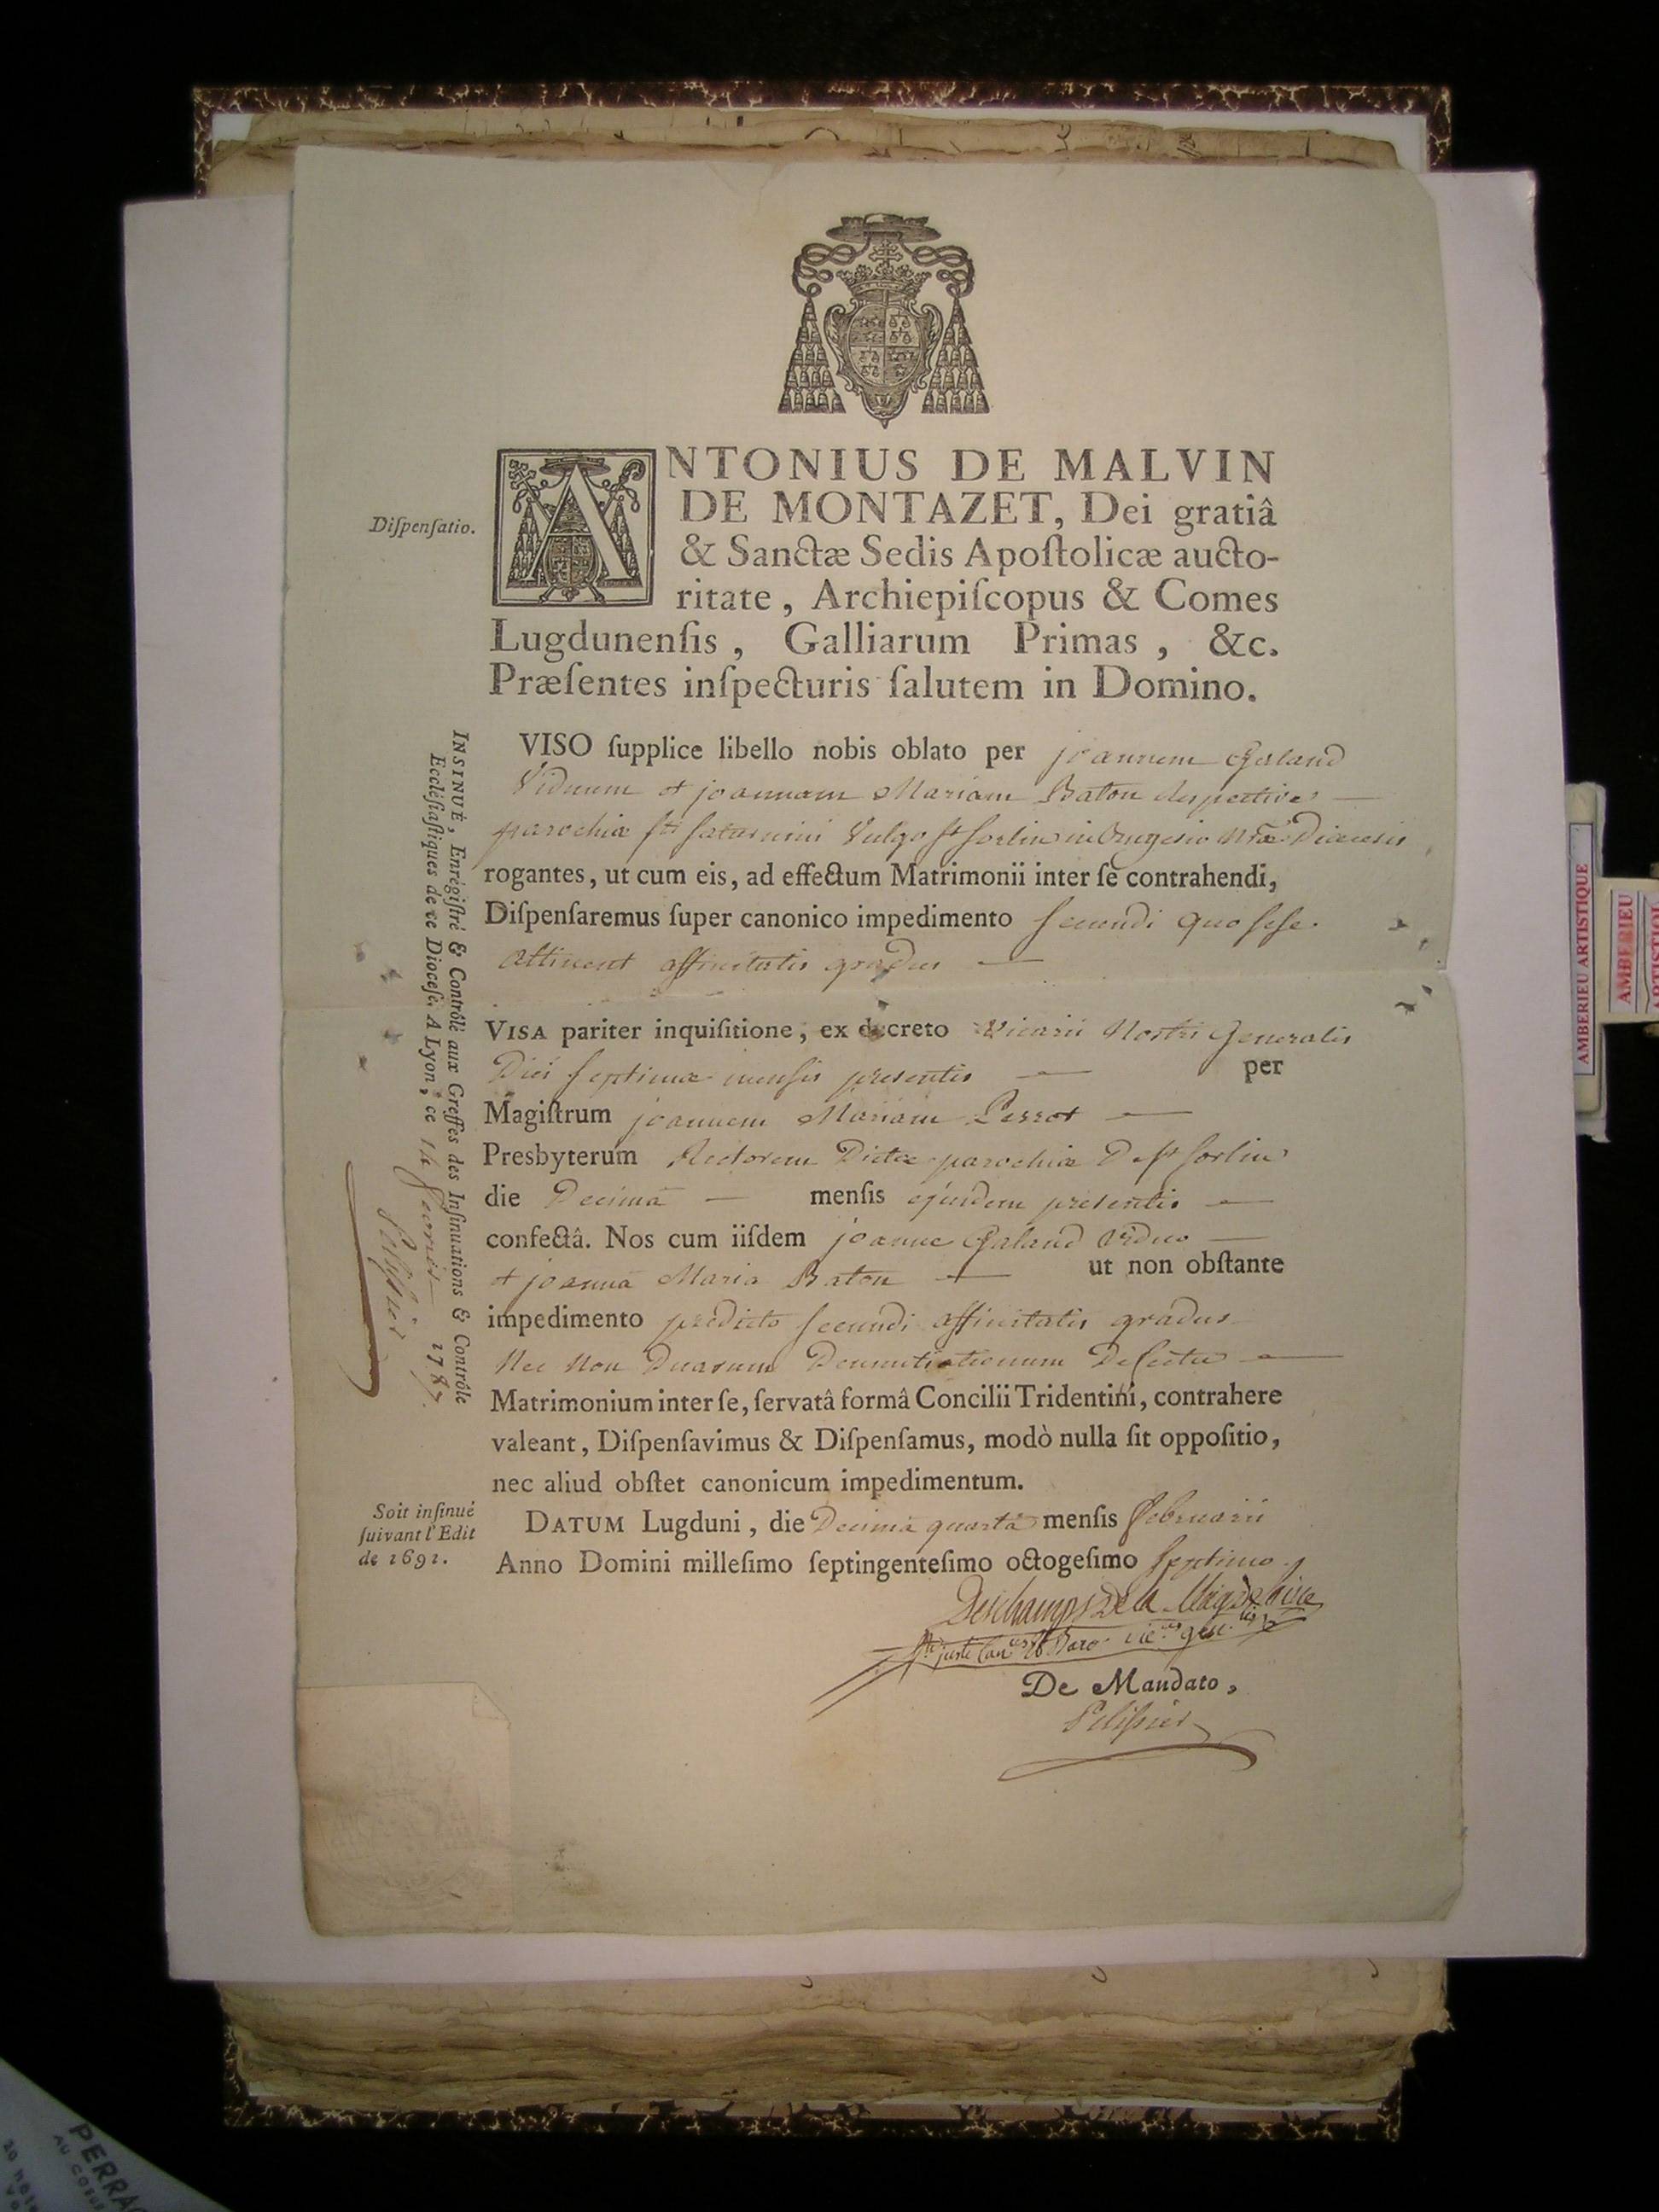 Diſpenſatio.
ANTONIUS DE MALVIN
DE MONTAZET, Dei gratiâ
& Sanctæ Sedis Apoſtolicæ aucto-
ritate, Archiepiſcopus & Comes
Lugdunenſis, Galliarum Primas, &c.
Præſentes inſpecturis ſalutem in Domino.
VISO ſupplice libello nobis oblato per joannem Galand
Viduum et joannam Mariam Baton
parochiæ sti saturnini Vulgo st sorlin in Diœcesis
rogantes, ut cum eis, ad effectum Matrimonii inter ſe contrahendi,
Diſpenſaremus ſuper canonico impedimento secundi quo sese
attinent affinitatis gradus
VISA pariter inquiſitione, ex decreto Vicarii Nostri Generalis
Diei septimæ mensis presentis per
Magiſtrum joannem Mariam Perrot
Presbyterum Rectorem Dictæ parochiæ De st sorlin
die Decimâ menſis ejusdem presentis
confectâ. Nos cum iiſdem joanne Galand viduo
et joannâ Maria Baton ut non obſtante
impedimento predicto secundi affinitatis gradus
Nec Non Duarum Denuntiationum Defectu
Matrimonium inter ſe, ſervatâ formâ Concilii Tridentini, contrahere
valeant, Diſpenſavimus & Diſpenſamus, modò nulla ſit oppoſitio,
nec aliud obſtet canonicum impedimentum.
DATUM Lugduni, die Decimâ quartâ menſis februarii
Anno Domini milleſimo ſeptingenteſimo octogeſimo septimo
Deschamps De la Magdelaine
De Mandato,
Pelissier
INSINUÉ, Enrégiſtré & Contrôlé aux Greffes des Inſinuations & Contrôle
Eccléſiaſtiques de ce Dioceſe. A Lyon, ce 14 1787.
Pelissier
Soit inſinué
ſuivant l'Edit
de 1691.
AMBERIEU ARTISTIQUE
AMBERIEU
PERRA
AU COEUR